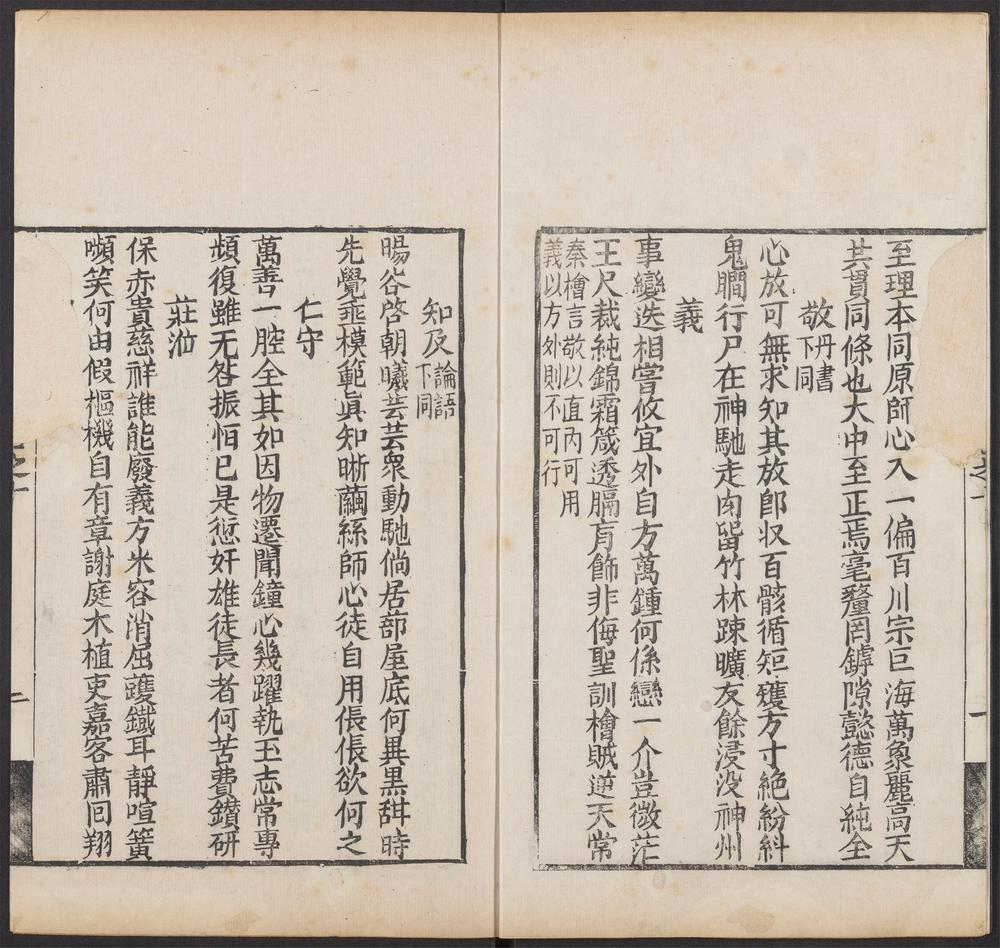 至理本同原師心入一偏百川宗巨海萬象麗高天
共貫同條也大中至正焉毫釐罔罅隙懿德自純全
敬丹書下同
心放可無求知其放卽収百骸循矩矱方寸絶紛糾
鬼瞷行尸在神馳走肉畱竹林踈曠友餘浸没神州
義
事變迭相嘗攸宜外自方萬鍾何係戀一介豈微茫
王尺裁純錦霜箴透膈肓飾非侮聖訓檜賊逆天常
秦檜言敬以直內可用
義以方外則不可行
知及論語下同
暘谷啓朝曦芸芸衆動馳倘居蔀屋底何異黒甜時
先覺乖模範眞知晰繭絲師心徒自用倀倀欲何之
仁守
萬善一腔全其如因物遷聞鐘心幾躍執玉志常專
頻復雖无咎振恒已是愆奸雄徒長者何苦費鑚研
莊涖
保赤貴慈祥誰能廢義方米容消屈蠖鐵耳靜喧簧
嚬笑何由假樞機自有章謝庭木植吏嘉客肅囘翔
之一
一
二